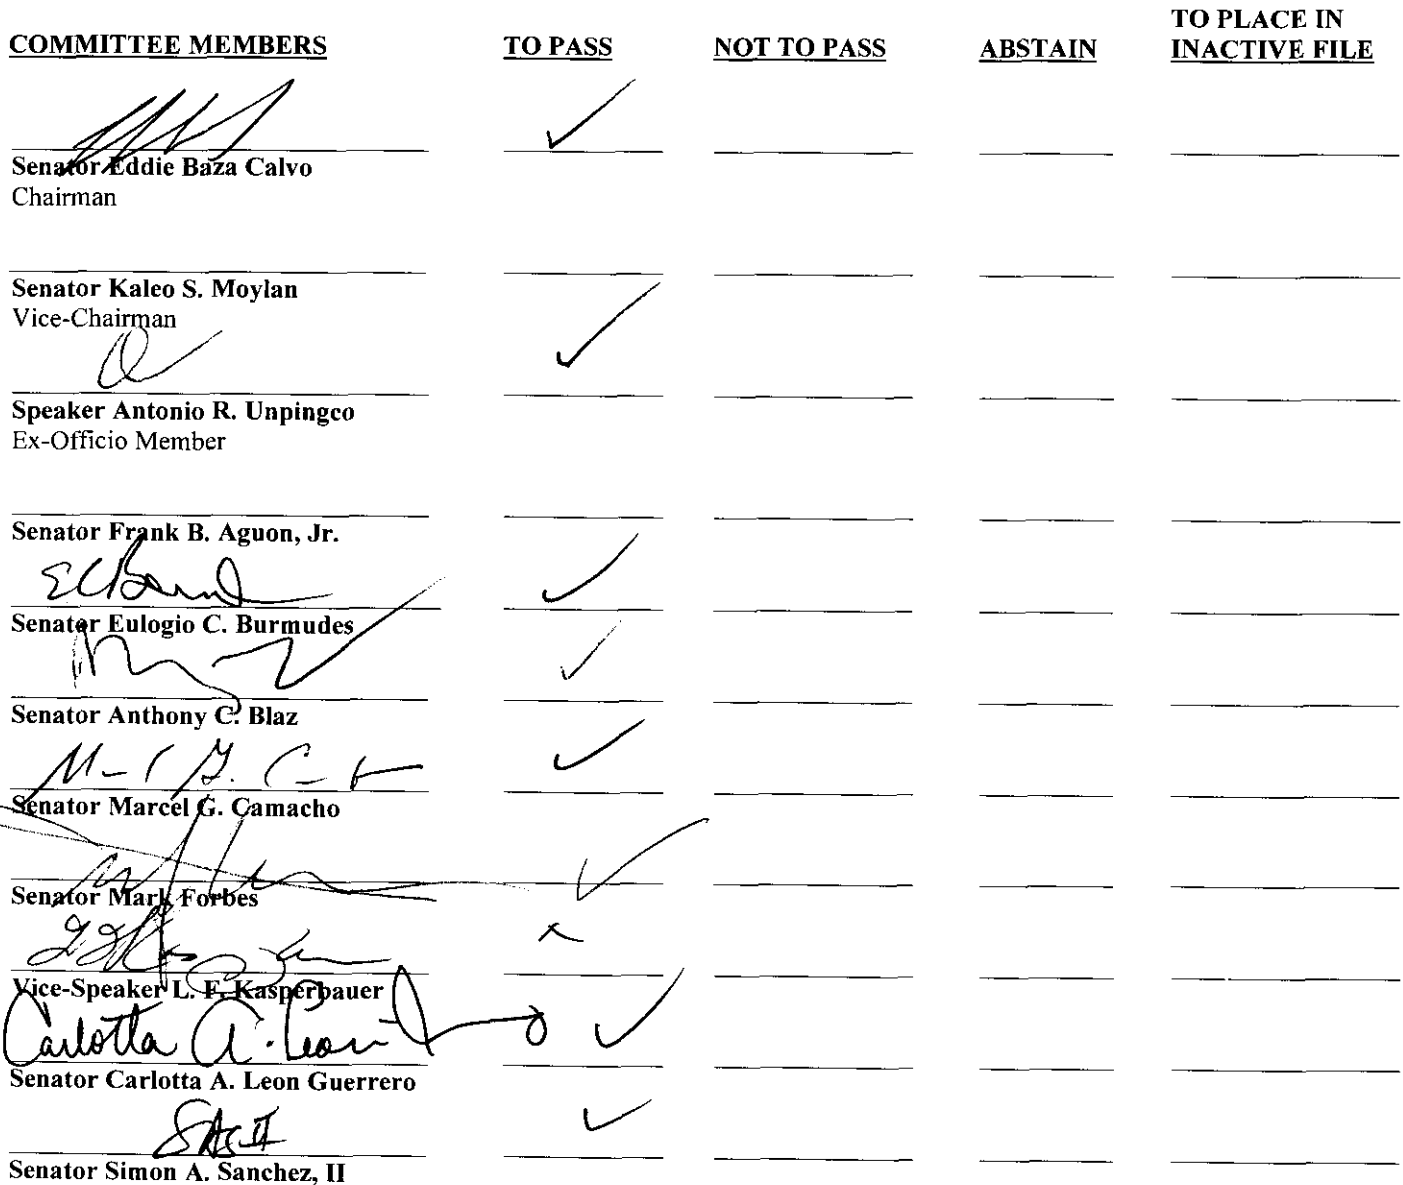 TO PLACE IN
COMMITTEE MEMBERS TO PASS NOT TO PASS ABSTAIN INACTIVE FILE
Senator Eddie Baza Calvo
Chairman
Senator Kaleo S. Moylan
Vice-Chairman
Speaker Antonio R. Unpingco
Ex-Officio Member
Senator Frank B. Aguon, Jr.
Senator Eulogio C. Burmudes
Senator Anthony C. Blaz
Senator Marcel G. Camacho
Senator Mark Forbes
Vice-Speaker L. F. Kasperbauer
Carlotta A. Leon
Senator Carlotta A. Leon Guerrero
SAS II
Senator Simon A. Sanchez, II